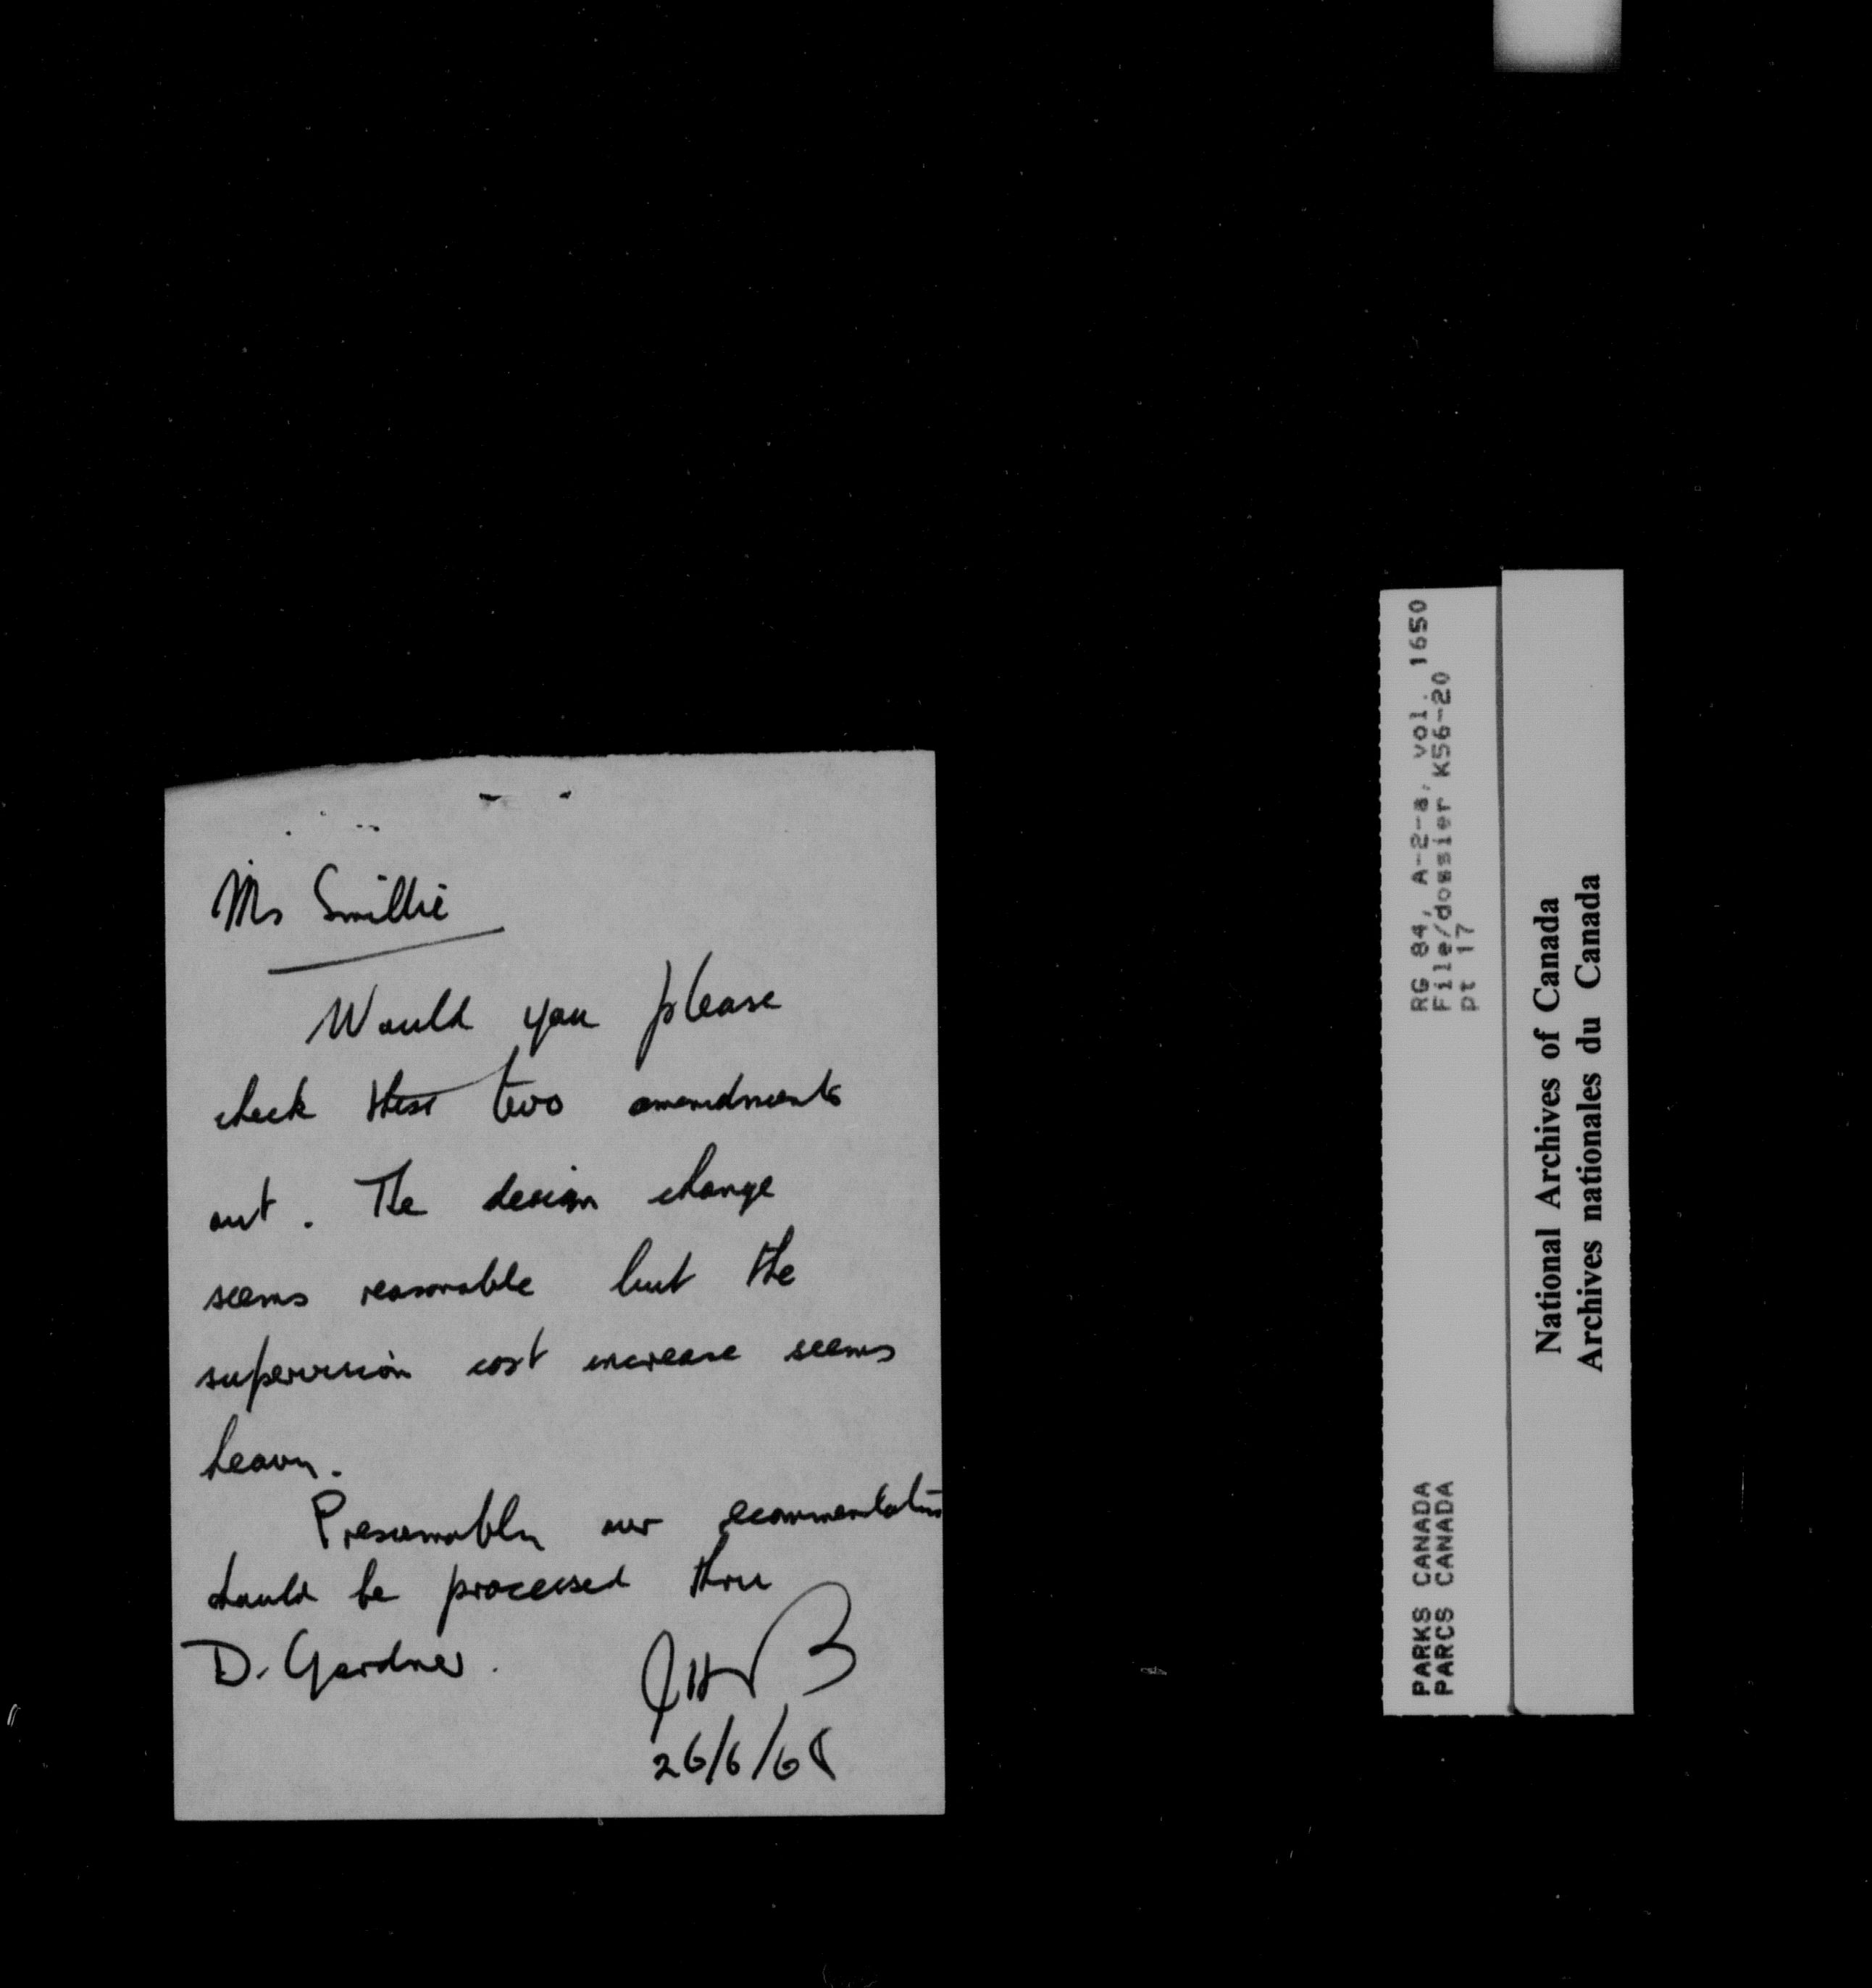 Mr Smillie
Would you please
check these two amendments
out. The design change
seems reasonable but the
supervision cost increase seems
heavy.
Presumably our recommendation
should be processed thru
D. Gardner.
26/6/68
RG 84, A-2-a, vol. 1650
File/dossier K56-20
pt 17
PARKS CANADA
PARCS CANADA
National Archives of Canada
Archives nationales du Canada